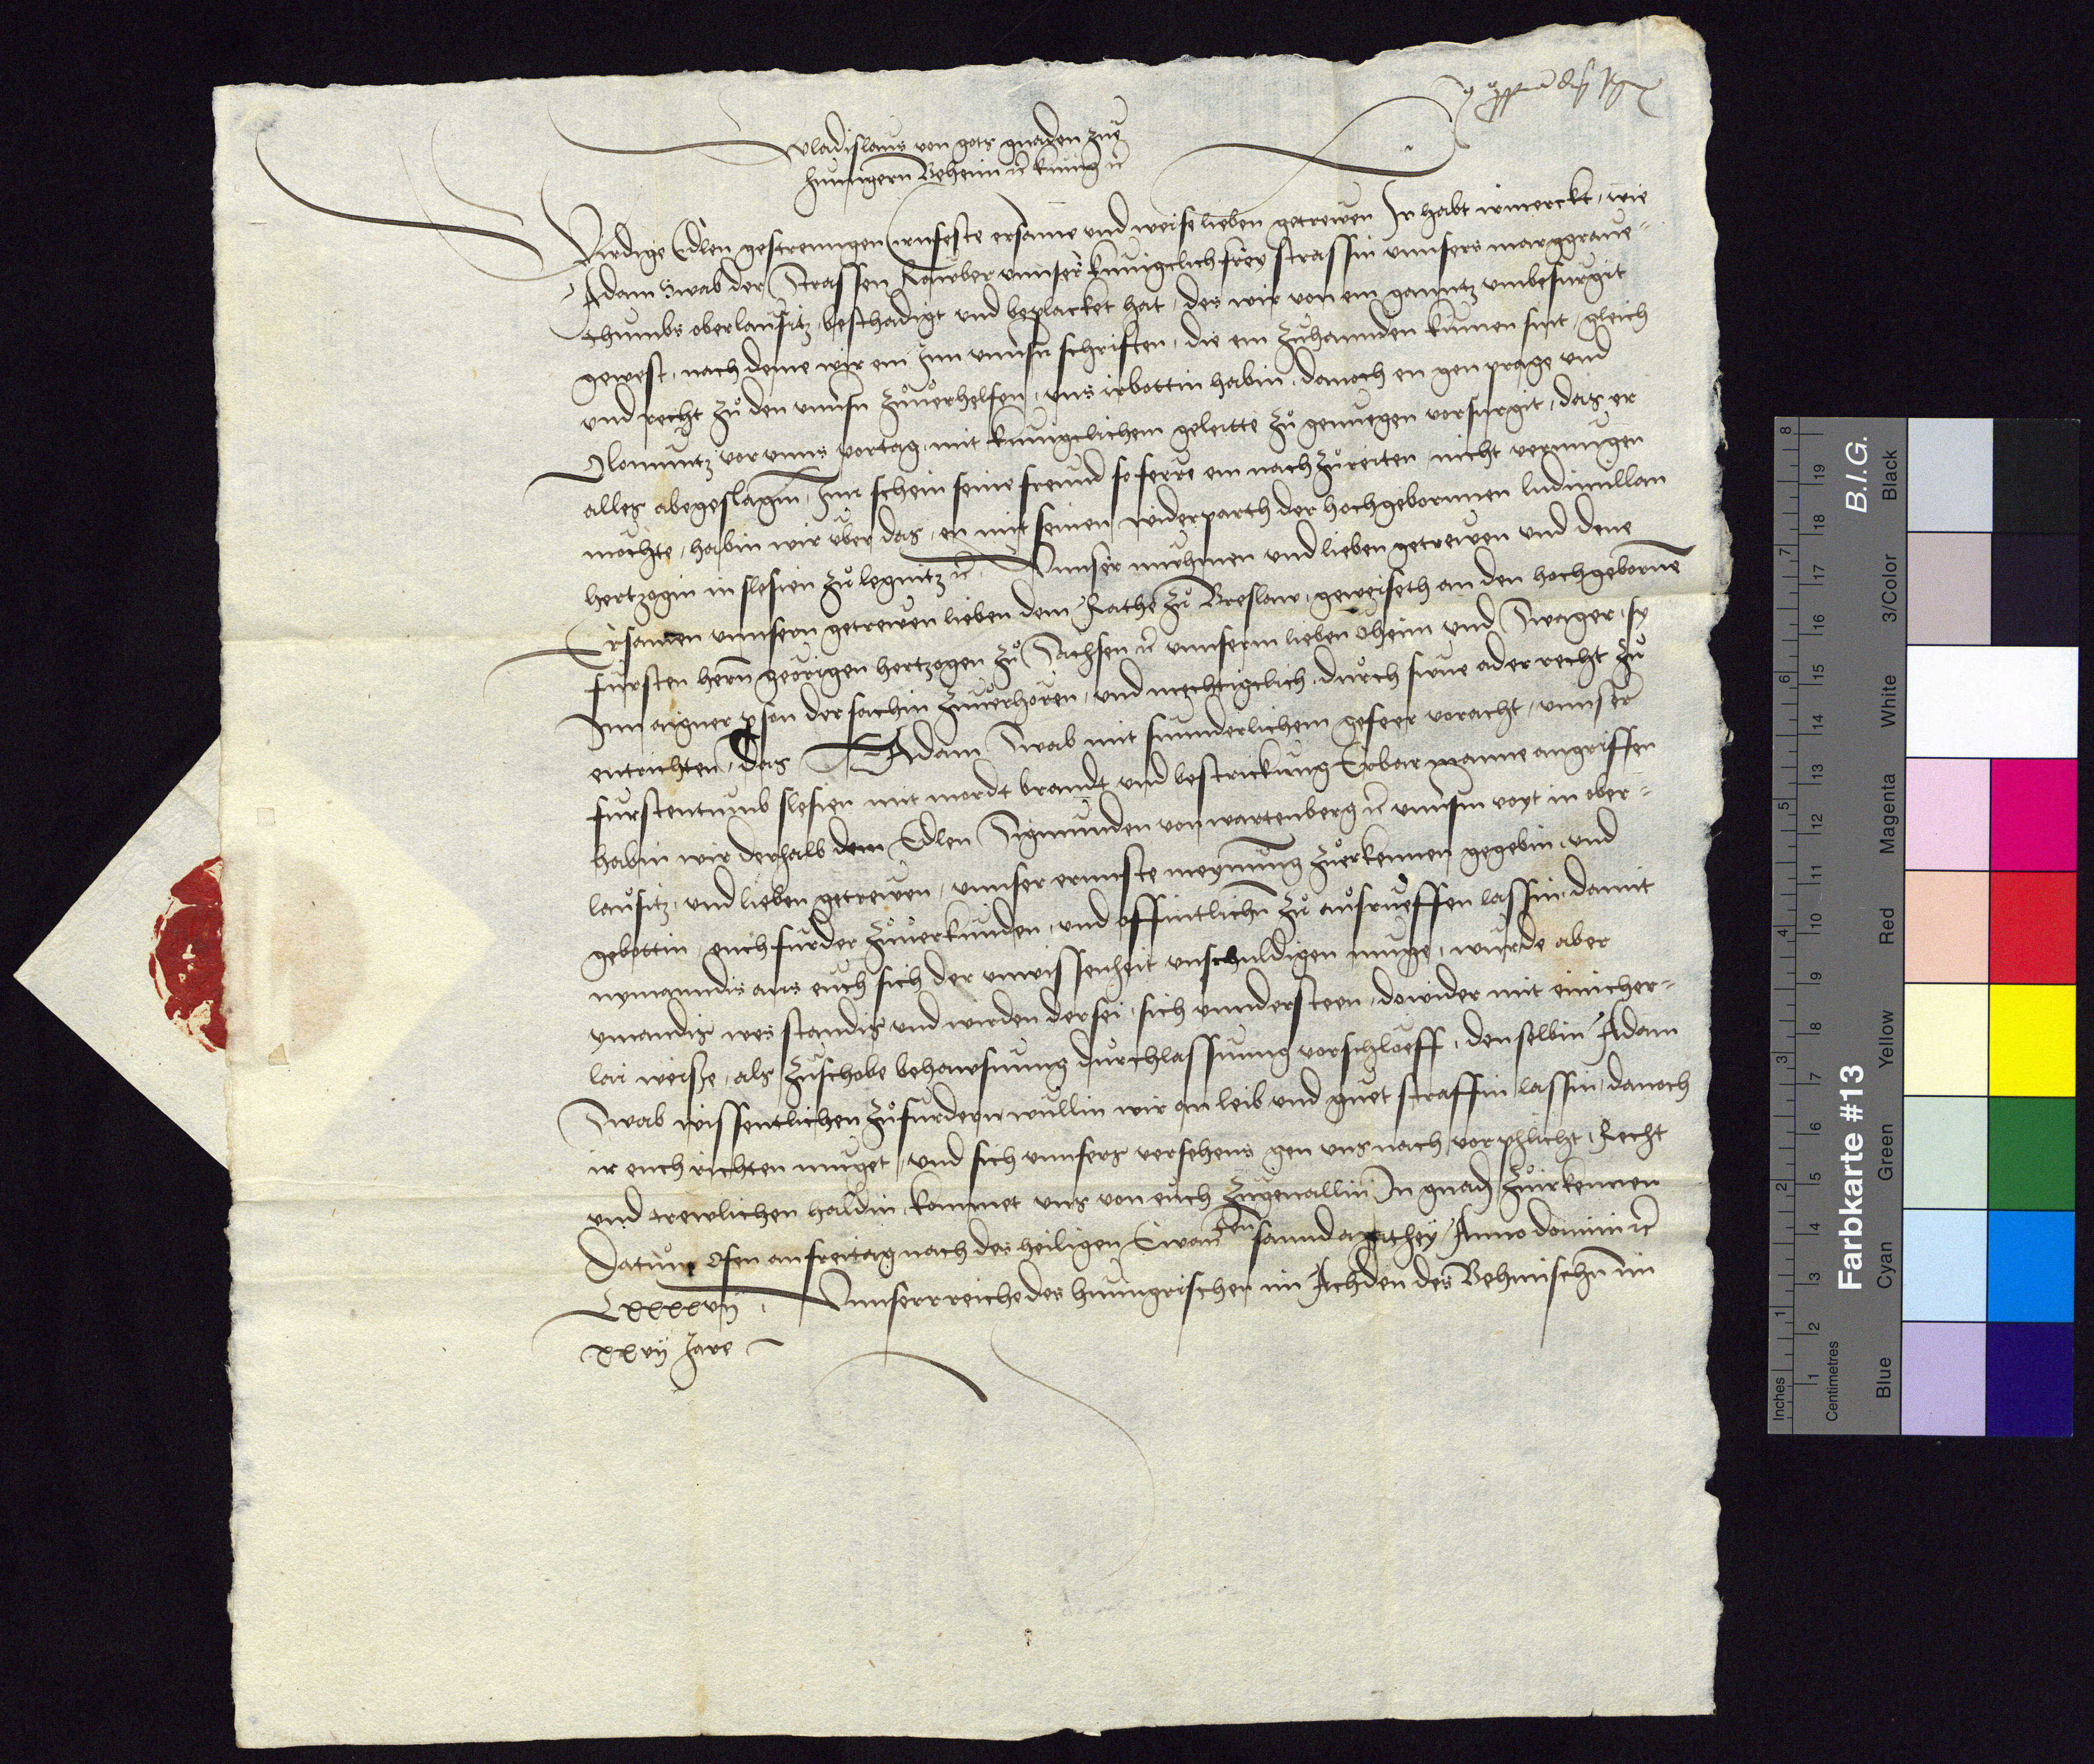 Wladislaus von gots gnaden zue
hunngern Beheim etc kunig etc
Wirdige Edlen gestrenngen Ernfeste ersame und weise lieben getrewen Ir habt vermerckt, wie
Adam Swab der Strassen Rawber unnser kunigclich frey strassin unnsers marggraue-
thumbs oberlausitz, beschadigt und beplacket hat, des wir von em ganntz unbesurgit
gewest, nach deme wir em Inn unnsn schriften, die em zuhannden kumen sint, gleich
und recht zu den unnsn zuuerhelfen, uns irbottin habin, danoch en gen prage und
Olomuntz vor unns vortag, mit kunigclichem geleitte zu genuegen vorsurgit, das er
alles abegeslagen, Inn schein seine freund so ferre em nach zureiten nicht vermugen
mochte, habin wir uber das, en mit seinen widerparth der hochgebornnen ludmillan
hertzogin in slesien zu legnitz etc. Unnser muhmen und lieben getrewen und dene
Ersamen unnsern getrewen lieben dem Rathe zu Breslaw, geweiseth an den hochgebornne
fursten hern georigen hertzogen zu Sachsen etc unnserm lieben Oheim und Swager, sy
Inn aigner pson der sachin zuuerhoren, und mechtigclich, durch sune ader recht zu
entrichten, das Adam Swab mit sunnderlichem gefeer voracht, unnser
furstentumb slesien mit mordt brandt und bestrickung Erbar manne angriffen
habin wir derhalb dem Edlen Sigmunden von wartenberg etc unnsm voyt in ober-
lausitz, und lieben getrewen, unnser ernnste meynung zuerkennen gegebin, und
gebottin, euch furder zuuerkunden, und offintlichn zu ausrueffen lassin, damit
nymanndis aus euch sich der unwissenheit unschuldigen muge, wurde aber
ymandis wes standis und wirden der sei, sich unndersteen, dowider mit einicher-
lai weise, als zuschobe behawsnung durchlassunng vorschloeff, denselbin Adam
Swab wissentlichen zufurdern wullin wir an leib und guet straffin lassin, danoch
ir euch richten muget, und sich unnsers versehens gen uns nach vorphlicht, Recht
und trewlichen haldin, kommet uns von euch zugevallin In gnad zuirkennen
Datum Ofen an freitag nach des heiligen Ewan ten sannd mathey Anno domini etc
Lxxxxvij. Unnser reiche des hunngrischen im Achden des Behmischn im
xxvij Jare